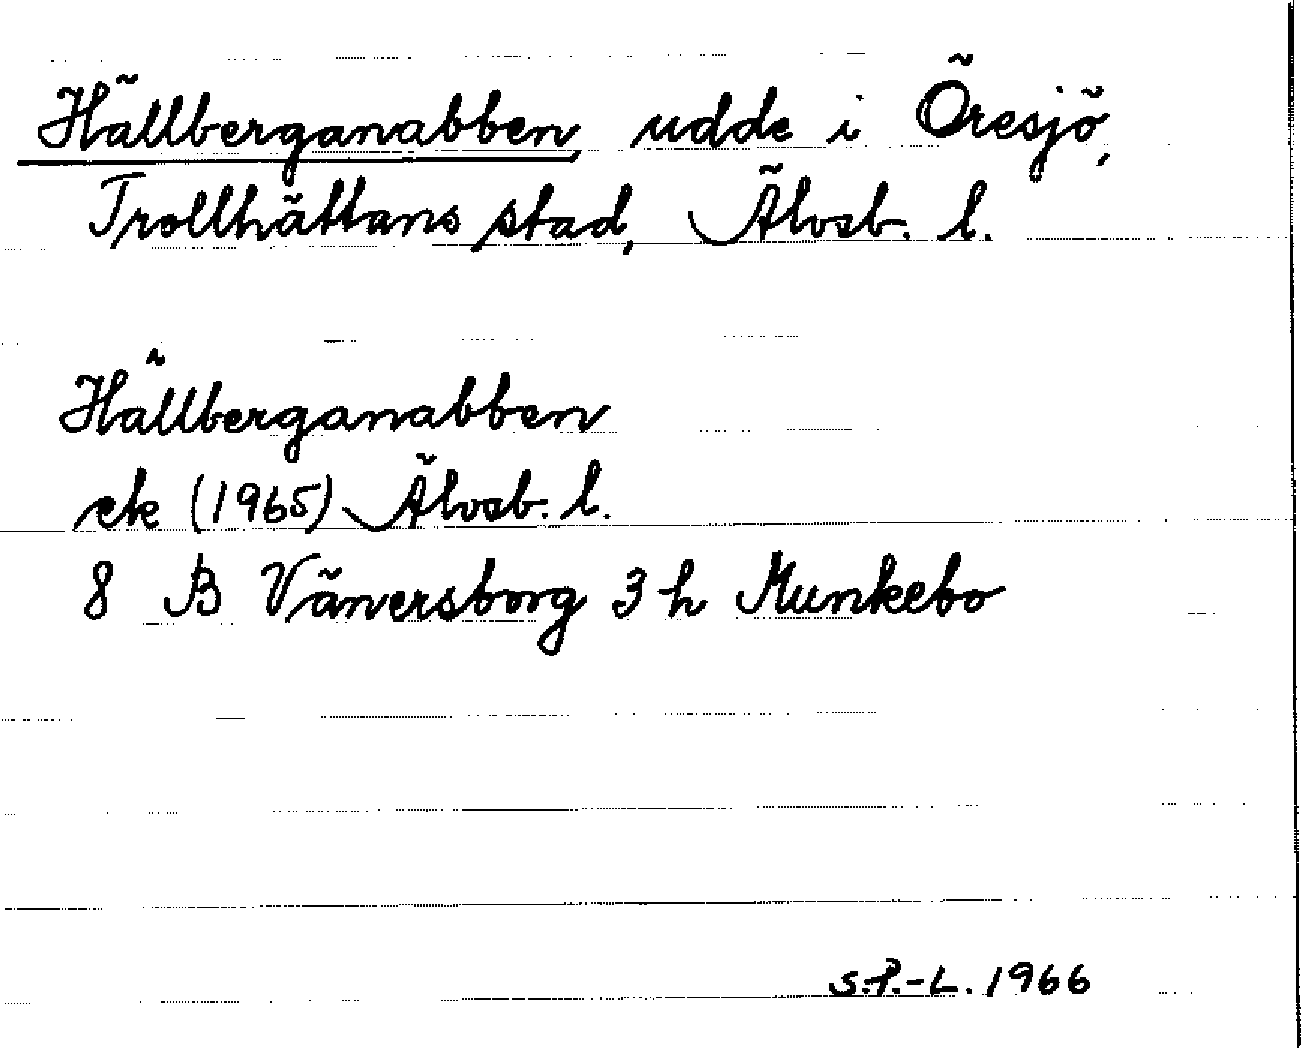 Hällberganabben, udde i Öresjö,
Trollhättans stad, Älvsb. l.
Hällberganabben
ek (1965) Älvsb. l.
8 B Vänersborg 3 h Munkebo
S.P.-L. 1966